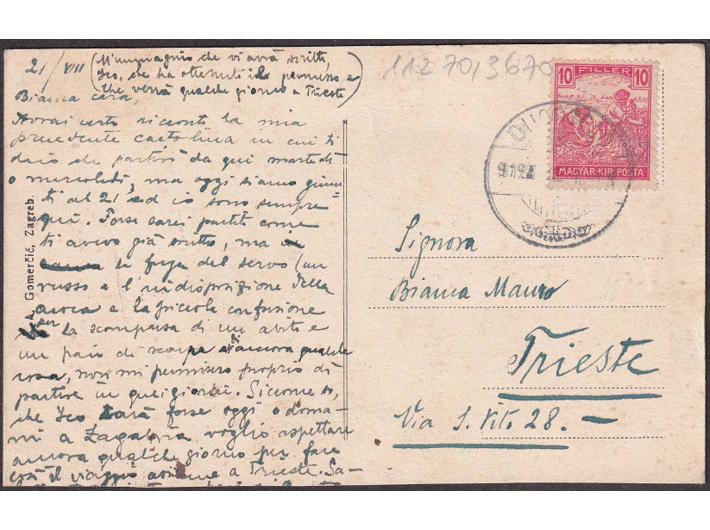 21/VII
M'immagino che vi avrà scritto,
Ico, che ha ottenuti il permesso e
che verrà qualche giorno a Trieste
Bianca cara,
Avrai certo ricevuti la mia
precedente cartolina in cui ti
dicevo che partirò da qui martedì
o mercoledì, ma oggi siamo giunti
ti al 21 ed io sono sempre
qui. Forse sarei partita come
ti avevo già scritto, ma
la fuga del servo (un
russo e l'indisposizione della
cuoca e la piccola confusione
per la scomparsa di un abito e
un paio di scarpe e d'ancora qualche
cosa, non mi permisero proprio di
partire in quei giorni. Siccome so,
che Ico sarà forse oggi o doma-
ni a Zagabria voglio aspettare
ancora qualche giorno per fare
così il viaggio assieme a Trieste. Sa-
A. Gomerčić, Zagreb.
11270,3670
10 FILLER 10
MAGYAR KIR. POSTA
Signora
Bianca Mauro
Trieste
Via S. Vito 28. —